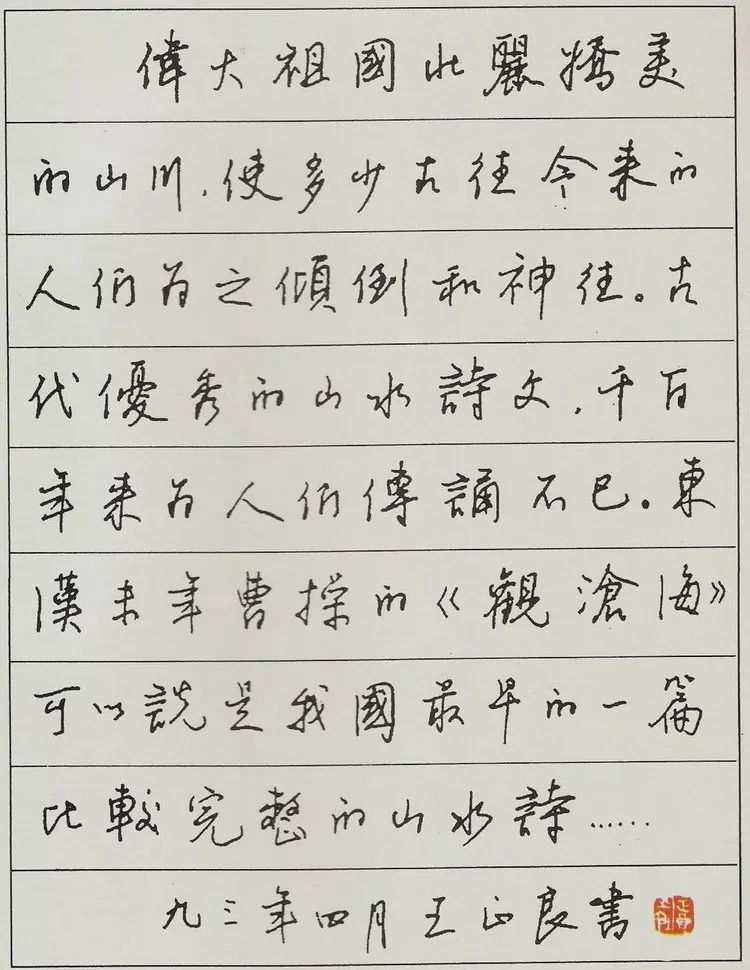 偉大祖國壯麗嬌美
的山川,使多少古往今来的
人们为之傾倒和神往。古
代優秀的山水詩文,千百
年来为人们傳誦不已。東
漢末年曹操的《觀滄海》
可以説是我國最早的一篇
比較完整的山水詩……
九三年四月王正良書